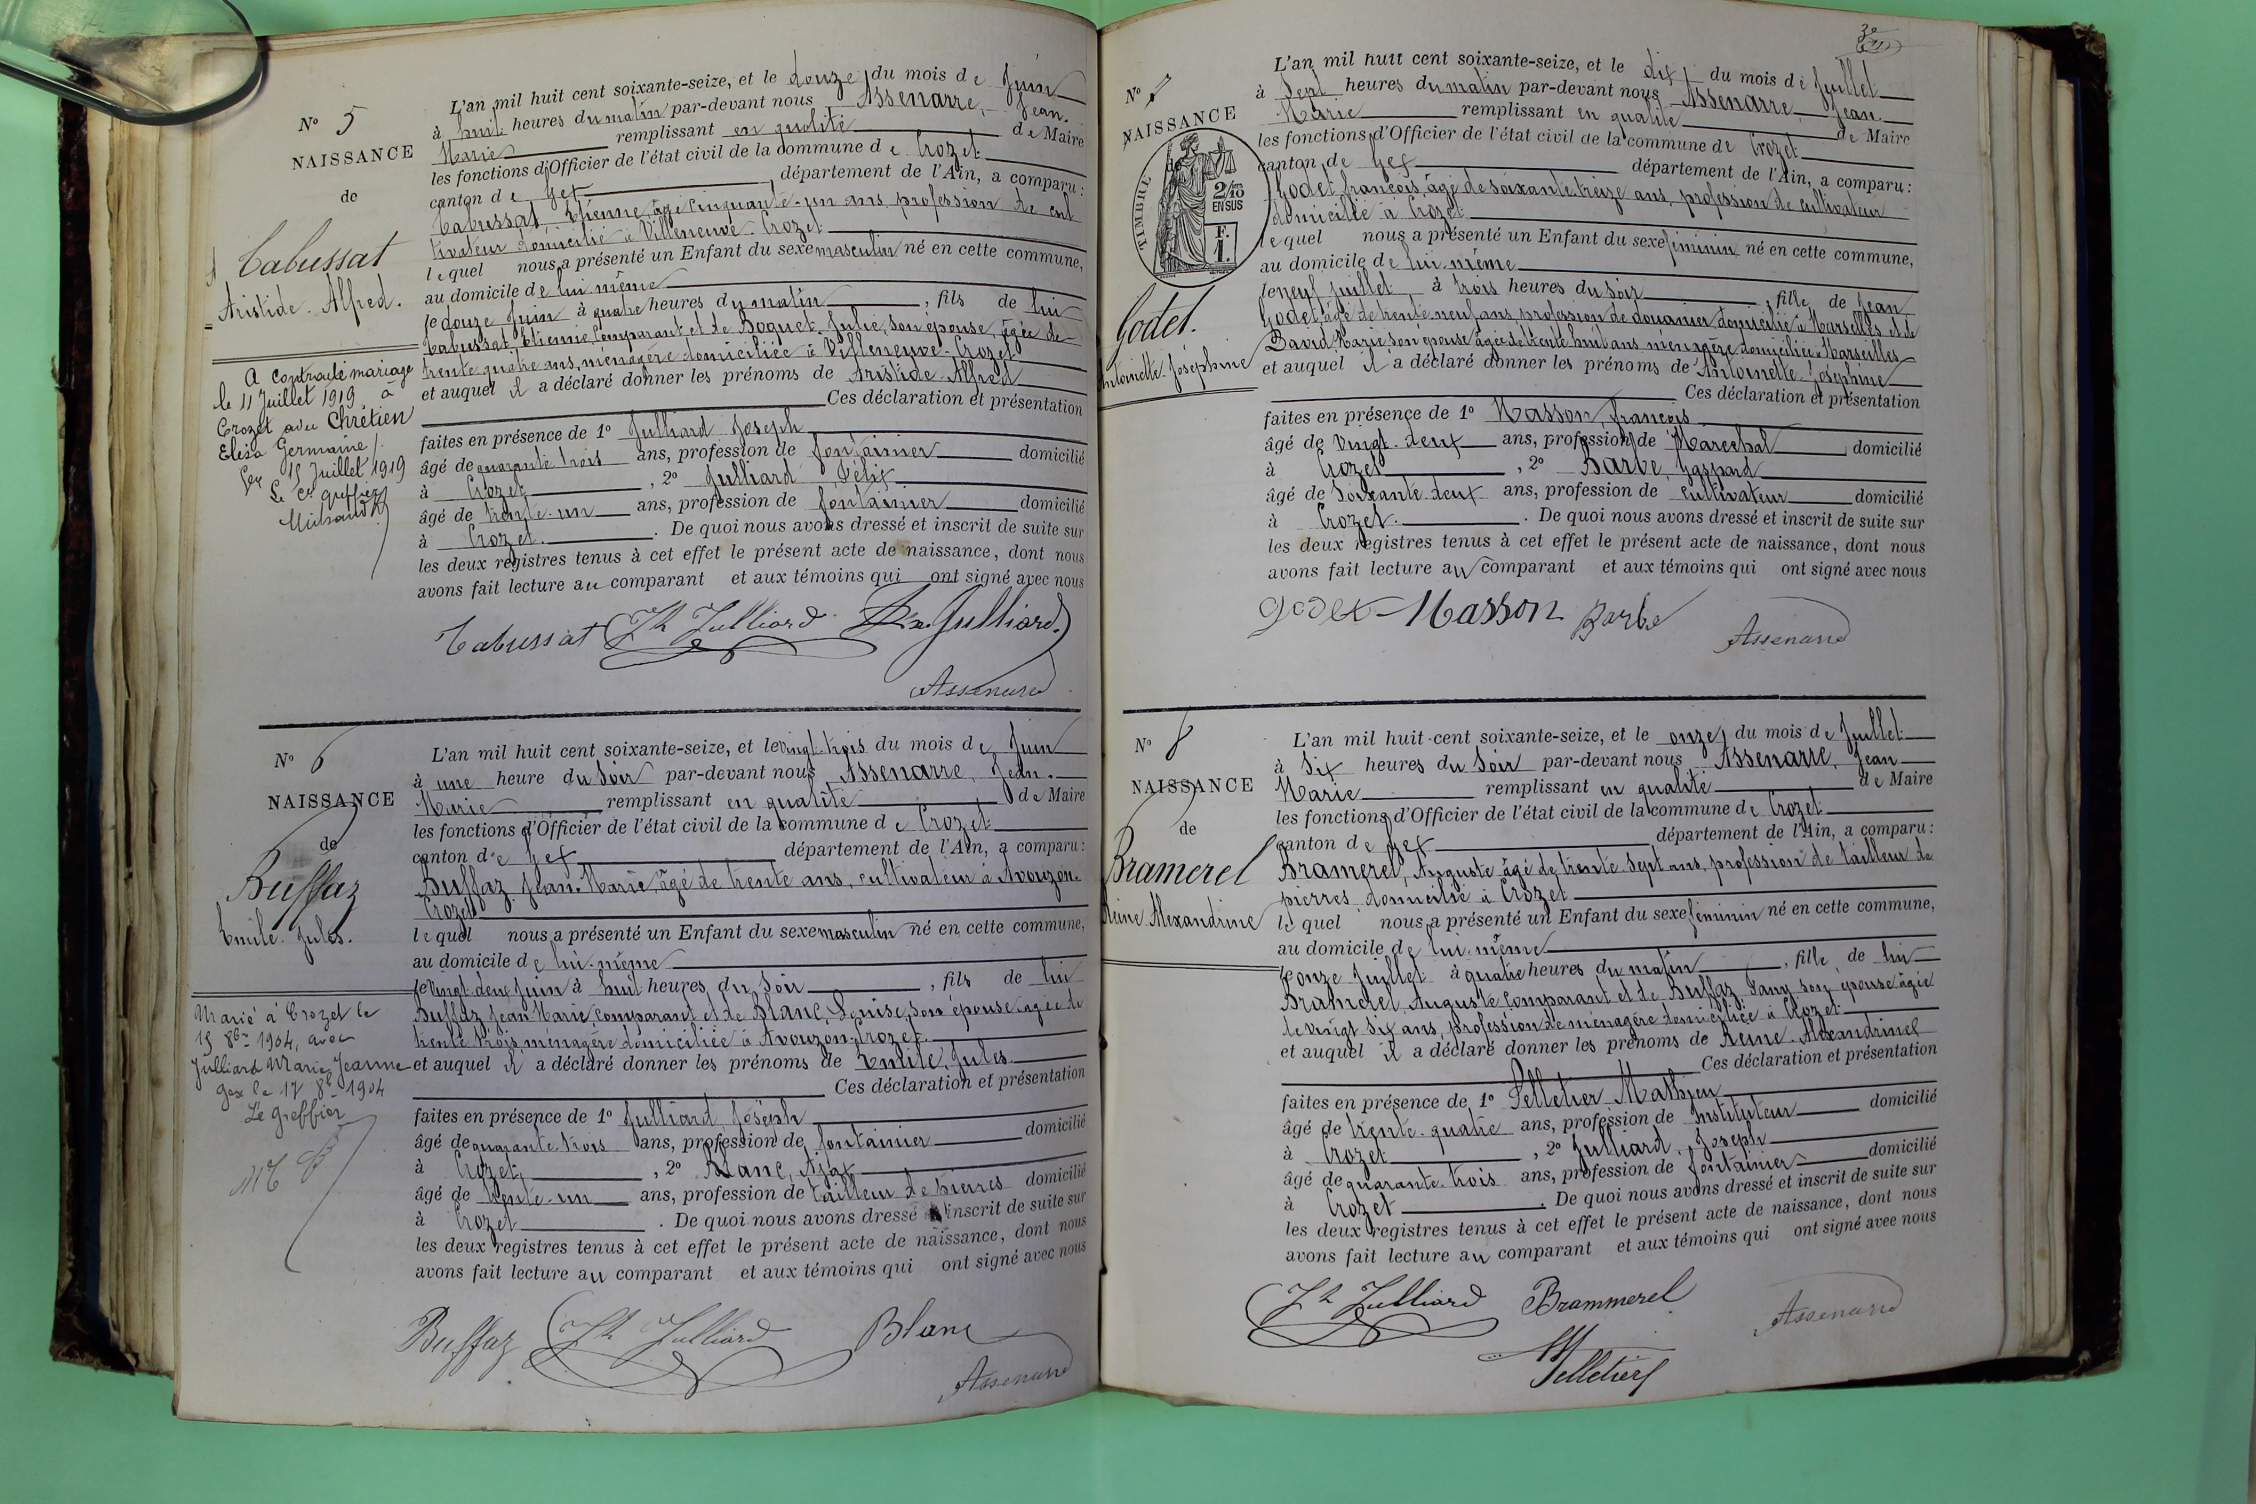 N° 5
NAISSANCE
de
Tabussat
Aristide. Alfred.
A contracté mariage
le 11 Juillet 1919 à
Crozet avec Chrétien
Elisa Germaine
15 Juillet 1919
Le Cs greffier
L'an mil huit cent soixante-seize, et le douze du mois de Juin
à huit heures du matin par-devant nous Assenarre, Jean.
Marie remplissant en qualité de Maire
les fonctions d'Officier de l'état civil de la commune de Crozet
canton de Gex département de l'Ain, a comparu :
Tabussat Etienne âgé cinquante-un ans profession de cul
tivateur domicilié à Villeneuve-Crozet
lequel nous a présenté un Enfant du sexe masculin né en cette commune,
au domicile de lui-même
le douze Juin à quatre heures du matin, fils de lui
Tabussat Etienne Comparant et de Boquet Julie, son épouse, âgée de
trente quatre ans, ménagère domiciliée à Villeneuve-Crozet
et auquel il a déclaré donner les prénoms de Aristide Alfred
Ces déclaration et présentation
faites en présence de 1° Julliard Joseph
âgé de quarante trois ans, profession de fontainier domicilié
à Crozet, 2° Julliard Félix
âgé de trente-un ans, profession de fontainier domicilié
à Crozet. De quoi nous avons dressé et inscrit de suite sur
les deux registres tenus à cet effet le présent acte de naissance, dont nous
avons fait lecture au comparant et aux témoins qui ont signé avec nous
Tabussat Jh Julliard Julliard
Assenarre
N° 6
NAISSANCE
de
Buffaz
Emile. Jules.
Marié à Crozet le
15 8bre 1904, avec
Julliard Marie Jeanne
Gex le 17 8bre 1904
Le Greffier
L'an mil huit cent soixante-seize, et le vingt-trois du mois de Juin
à une heure du Soir par-devant nous Assenarre, Jean.
Marie remplissant en qualité de Maire
les fonctions d'Officier de l'état civil de la commune de Crozet
canton de Gex département de l'Ain, a comparu :
Buffaz Jean-Marie, âgé de trente ans, cultivateur à Avouzon-
Crozet
lequel nous a présenté un Enfant du sexe masculin né en cette commune,
au domicile de lui-même
le vingt-deux Juin à huit heures du Soir, fils de lui
Buffaz Jean Marie Comparant et de Blanc, Louise, son épouse âgée de
trente trois ménagère domiciliée à Avouzon-Crozet
et auquel il a déclaré donner les prénoms de Emile, Jules
Ces déclaration et présentation
faites en présence de 1° Julliard, Joseph
âgé de quarante-trois ans, profession de fontainier domicilié
à Crozet, 2° Blanc, Ajax
âgé de trente-un ans, profession de tailleur de pierres domicilié
à Crozet. De quoi nous avons dressé et inscrit de suite sur
les deux registres tenus à cet effet le présent acte de naissance, dont nous
avons fait lecture au comparant et aux témoins qui ont signé avec nous
Buffaz Jh Julliard Blanc
Assenarre
N° 7
NAISSANCE
de
TIMBRE
2/10 EN SUS
F. 1.
Godet.
Antoinette. Joséphine
L'an mil huit cent soixante-seize, et le dix du mois de Juillet
à Sept heures du matin par-devant nous Assenarre, Jean.
Marie remplissant en qualité de Maire
les fonctions d'Officier de l'état civil de la commune de Crozet
canton de Gex département de l'Ain, a comparu :
Godet françois, âgé de soixante treize ans, profession de cultivateur
domicilié à Crozet
lequel nous a présenté un Enfant du sexe féminin né en cette commune,
au domicile de lui-même
le neuf Juillet à trois heures du soir, fille de Jean
Godet, âgé de trente neuf ans profession de douanier domicilié à Marseilles et de
David Marie son épouse âgée de trente huit ans ménagère domiciliée à Marseilles
et auquel il a déclaré donner les prénoms de Antoinette Joséphine
Ces déclaration et présentation
faites en présence de 1° Masson, françois
âgé de vingt-deux ans, profession de Maréchal domicilié
à Crozet, 2° Barbe, Gaspard
âgé de Soixante-deux ans, profession de cultivateur domicilié
à Crozet. De quoi nous avons dressé et inscrit de suite sur
les deux registres tenus à cet effet le présent acte de naissance, dont nous
avons fait lecture au comparant et aux témoins qui ont signé avec nous
godet Masson Barbe
Assenarre
N° 8
NAISSANCE
de
Bramerel
Reine Alexandrine
L'an mil huit cent soixante-seize, et le onze du mois de Juillet
à Six heures du Soir par-devant nous Assenarre, Jean
Marie remplissant en qualité de Maire
les fonctions d'Officier de l'état civil de la commune de Crozet
canton de Gex département de l'Ain, a comparu :
Bramerel, Auguste âgé de trente-sept ans, profession de tailleur de
pierres domicilié à Crozet
lequel nous a présenté un Enfant du sexe féminin né en cette commune,
au domicile de lui-même
le onze Juillet à quatre heures du matin, fille de lui
Bramerel, Auguste, Comparant et de Buffaz Fany son épouse âgée
de vingt six ans, profession de ménagère domiciliée à Crozet
et auquel il a déclaré donner les prénoms de Reine-Alexandrine
Ces déclaration et présentation
faites en présence de 1° Pelletier Mathieu
âgé de trente-quatre ans, profession de Instituteur domicilié
à Crozet, 2° Julliard, Joseph
âgé de quarante-trois ans, profession de fontainier domicilié
à Crozet. De quoi nous avons dressé et inscrit de suite sur
les deux registres tenus à cet effet le présent acte de naissance, dont nous
avons fait lecture au comparant et aux témoins qui ont signé avec nous
Jh Julliard Brammerel
Assenarre
Pelletier